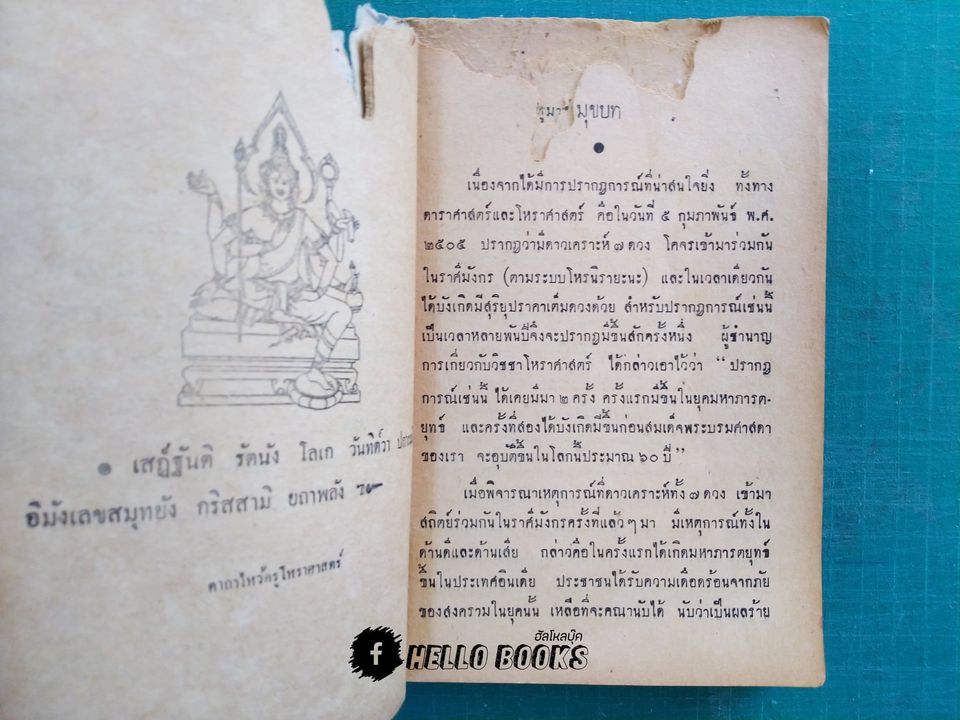 ๏ เสฏ์ฐันติ รัตนัง โลเก วันทิต์วา
อิมังเลขสมุทยัง กริสสามิ ยถาพลัง ๛
คาถาไหว้ครูโหราศาสตร์
มุขบท
เนื่องจากได้มีการปรากฏการณ์ที่น่าสนใจยิ่ง ทั้งทาง
ดาราศาสตร์และโหราศาสตร์ คือในวันที่ ๕ กุมภาพันธ์ พ.ศ.
๒๕๐๕ ปรากฏว่ามีดาวเคราะห์ ๗ ดวง โคจรเข้ามาร่วมกัน
ในราศีมังกร (ตามระบบโหรนิรายะนะ) และในเวลาเดียวกัน
ได้บังเกิดมีสุริยุปราคาเต็มดวงด้วย สำหรับปรากฏการณ์เช่นนี้
เป็นเวลาหลายพันปีจึงจะปรากฏมีขึ้นสักครั้งหนึ่ง ผู้ชำนาญ
การเกี่ยวกับวิชชาโหราศาสตร์ ได้กล่าวเอาไว้ว่า “ ปรากฏ
การณ์เช่นนี้ ได้เคยมีมา ๒ ครั้ง ครั้งแรกมีขึ้นในยุคมหาภารต-
ยุทธ์ และครั้งที่สองได้บังเกิดมีขึ้นก่อนสมเด็จพระบรมศาสดา
ของเรา จะอุบัติขึ้นในโลกนี้ประมาณ ๖๐ ปี ”
เมื่อพิจารณาเหตุการณ์ที่ดาวเคราะห์ทั้ง ๗ ดวง เข้ามา
สถิตย์ร่วมกันในราศีมังกรครั้งที่แล้ว ๆ มา มีเหตุการณ์ทั้งใน
ด้านดีและด้านเสีย กล่าวคือในครั้งแรกได้เกิดมหาภารตยุทธ์
ขึ้นในประเทศอินเดีย ประชาชนได้รับความเดือดร้อนจากภัย
ของสงครามในยุคนั้น เหลือที่จะคณานับได้ นับว่าเป็นผลร้าย
ฮัลโหลบุ๊ค
f HELLO BOOKS